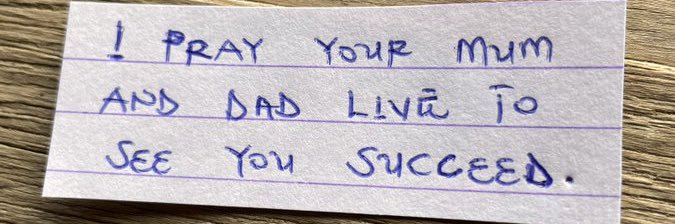 I PRAY YOUR MUM
AND DAD LIVE TO
SEE YOU SUCCEED.